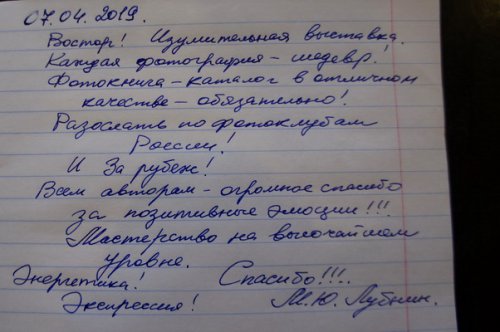 07.04.2019.
Восторг! Изумительная выставка.
Каждая фотография - шедевр!
Фотокнига - каталог в отличном
качестве - обязательно!
Разослать по фотоклубам
России!
И За рубеж!
Всем авторам - огромное спасибо
за позитивные эмоции!!!
Мастерство на высочайшем
уровне.
Энергетика! Спасибо!!!.
Экспрессия! М.Ю.